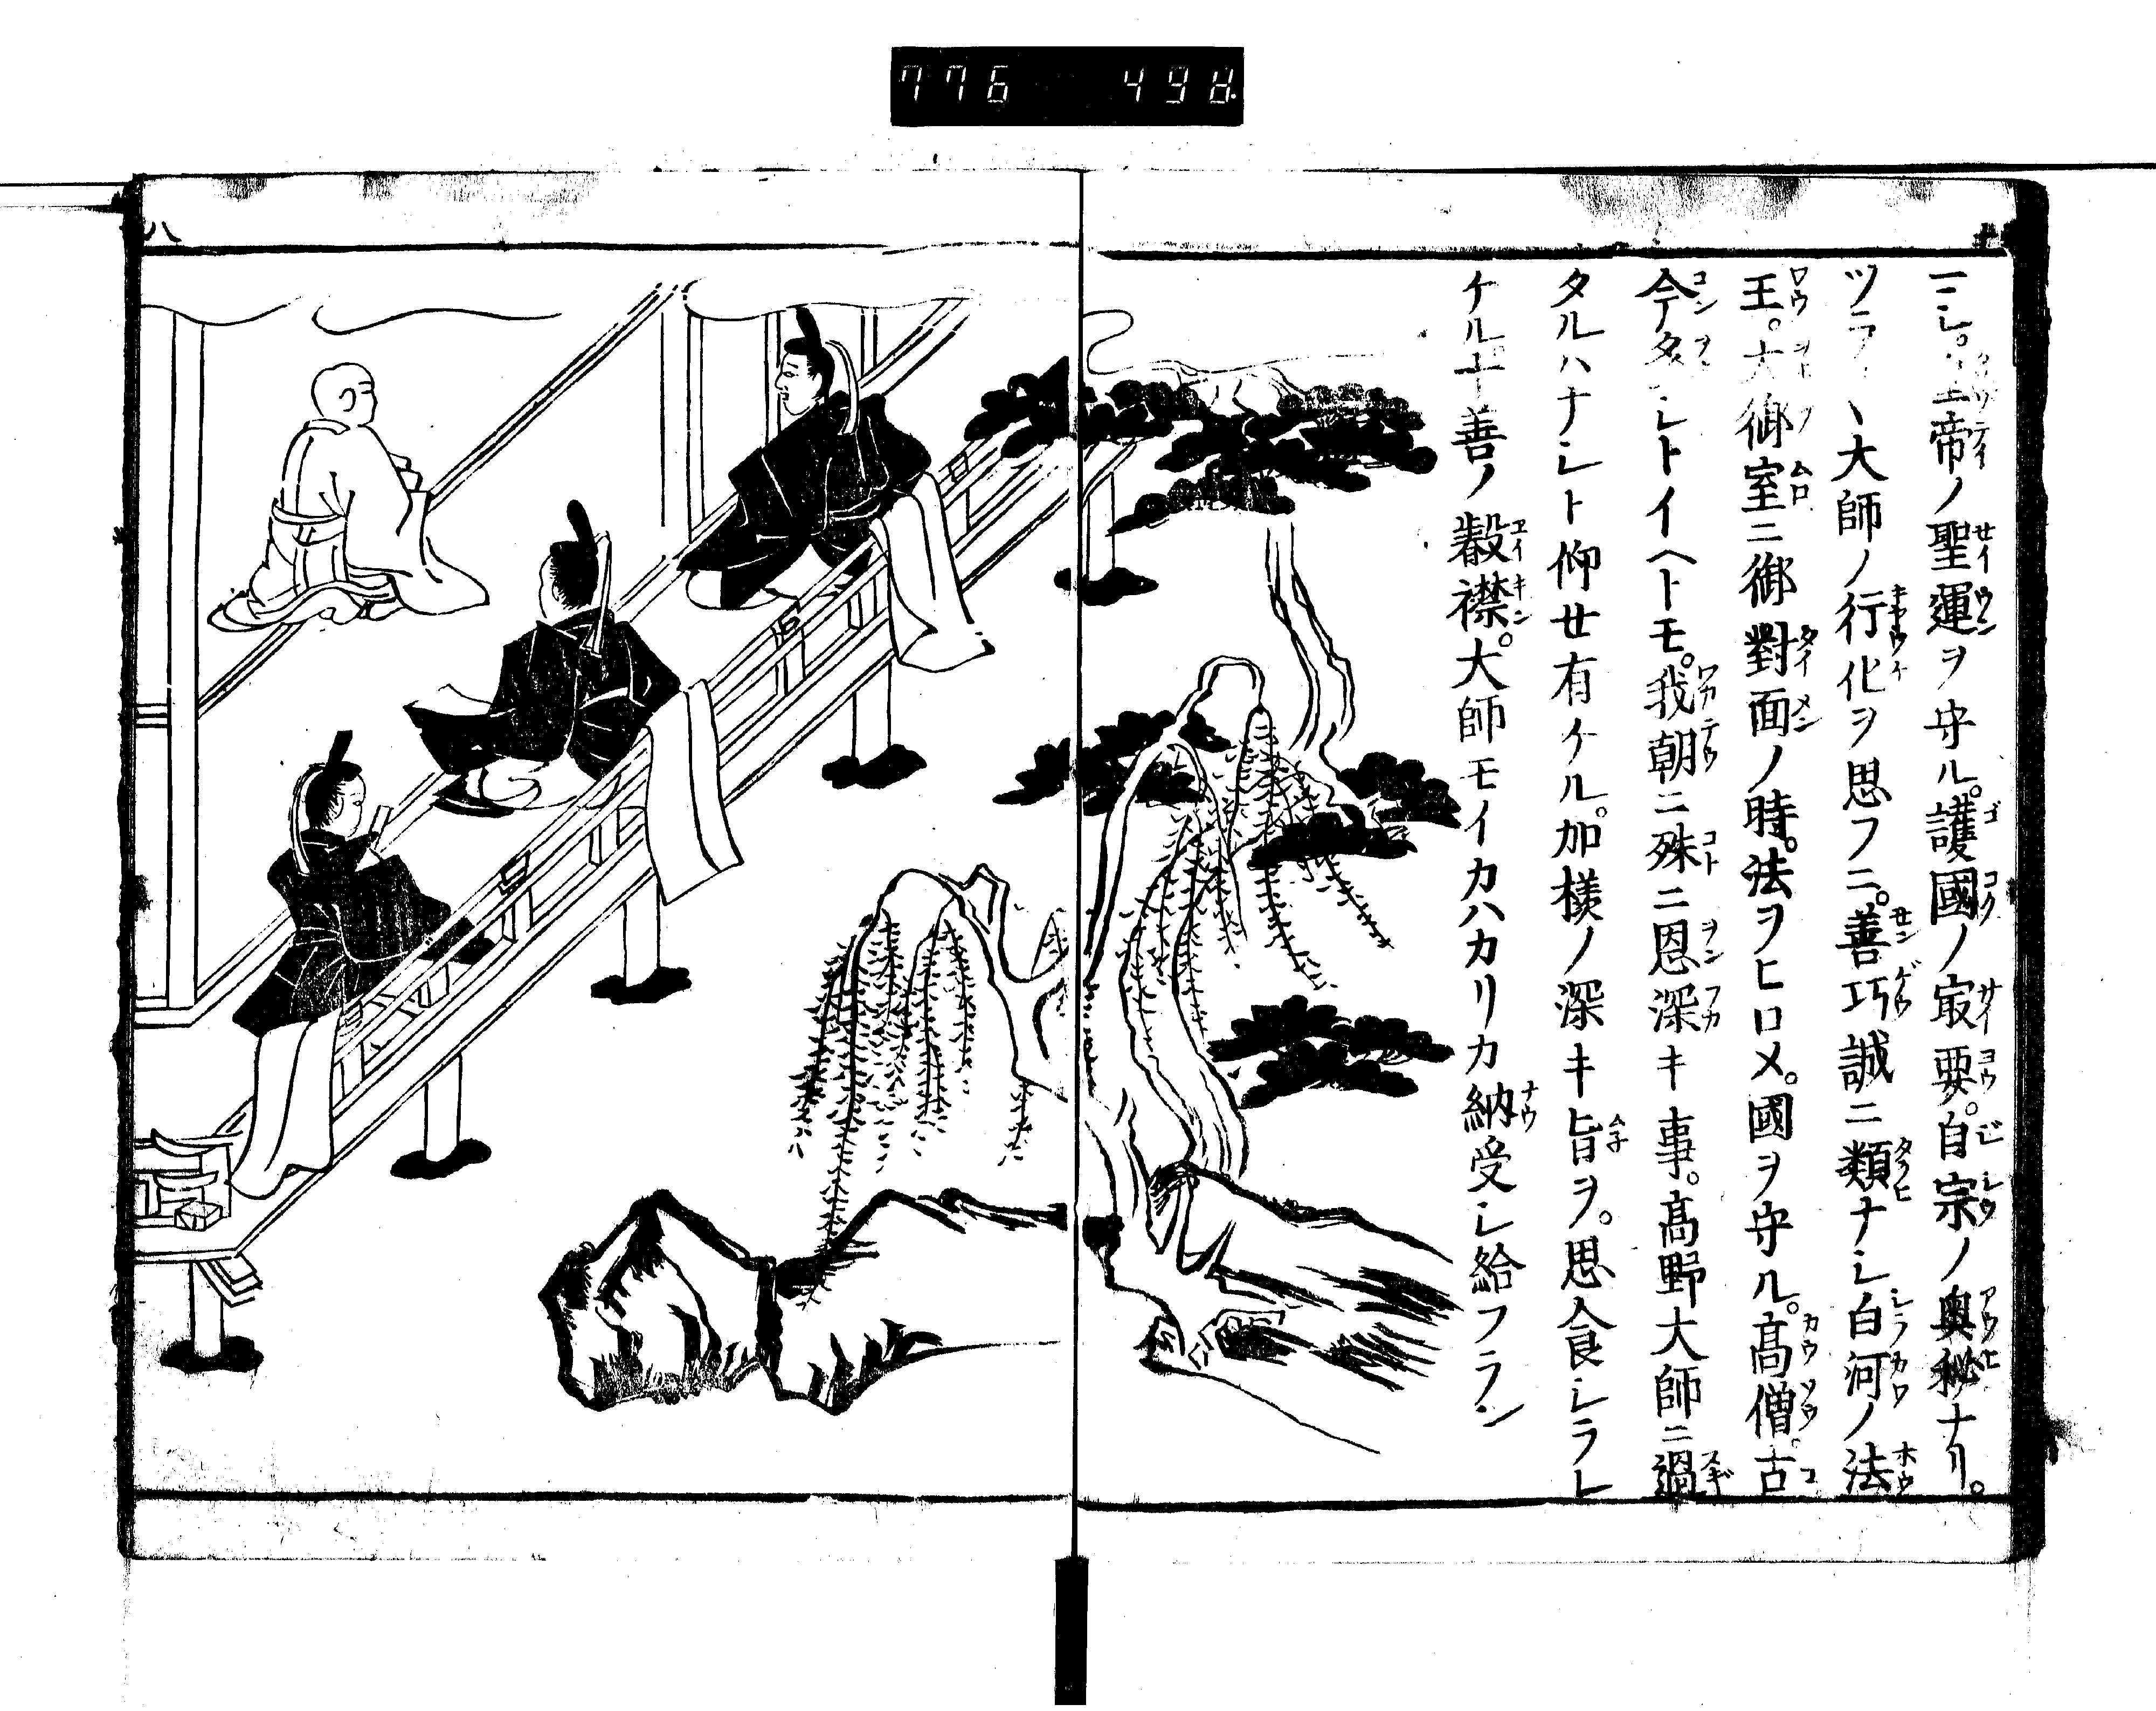 776 498
ニシ。皇帝ノ聖運ヲ守ル。護國ノ㝡要。自宗ノ奥秘ナリ。
大師ノ行化ヲ思フニ。善巧誠ニ類ナシ白河ノ法
王。大御室ニ御對面ノ時。法ヲヒロメ。國ヲ守ル。髙僧古
今タシトイヘトモ。我朝ニ殊ニ恩深キ事。髙野大師ニ過
タルハナシト仰せ有ケル。加様ノ深キ旨ヲ。思食シラレ
ケル十善ノ襟。大師モイカハカリカ納受シ給フラン
八